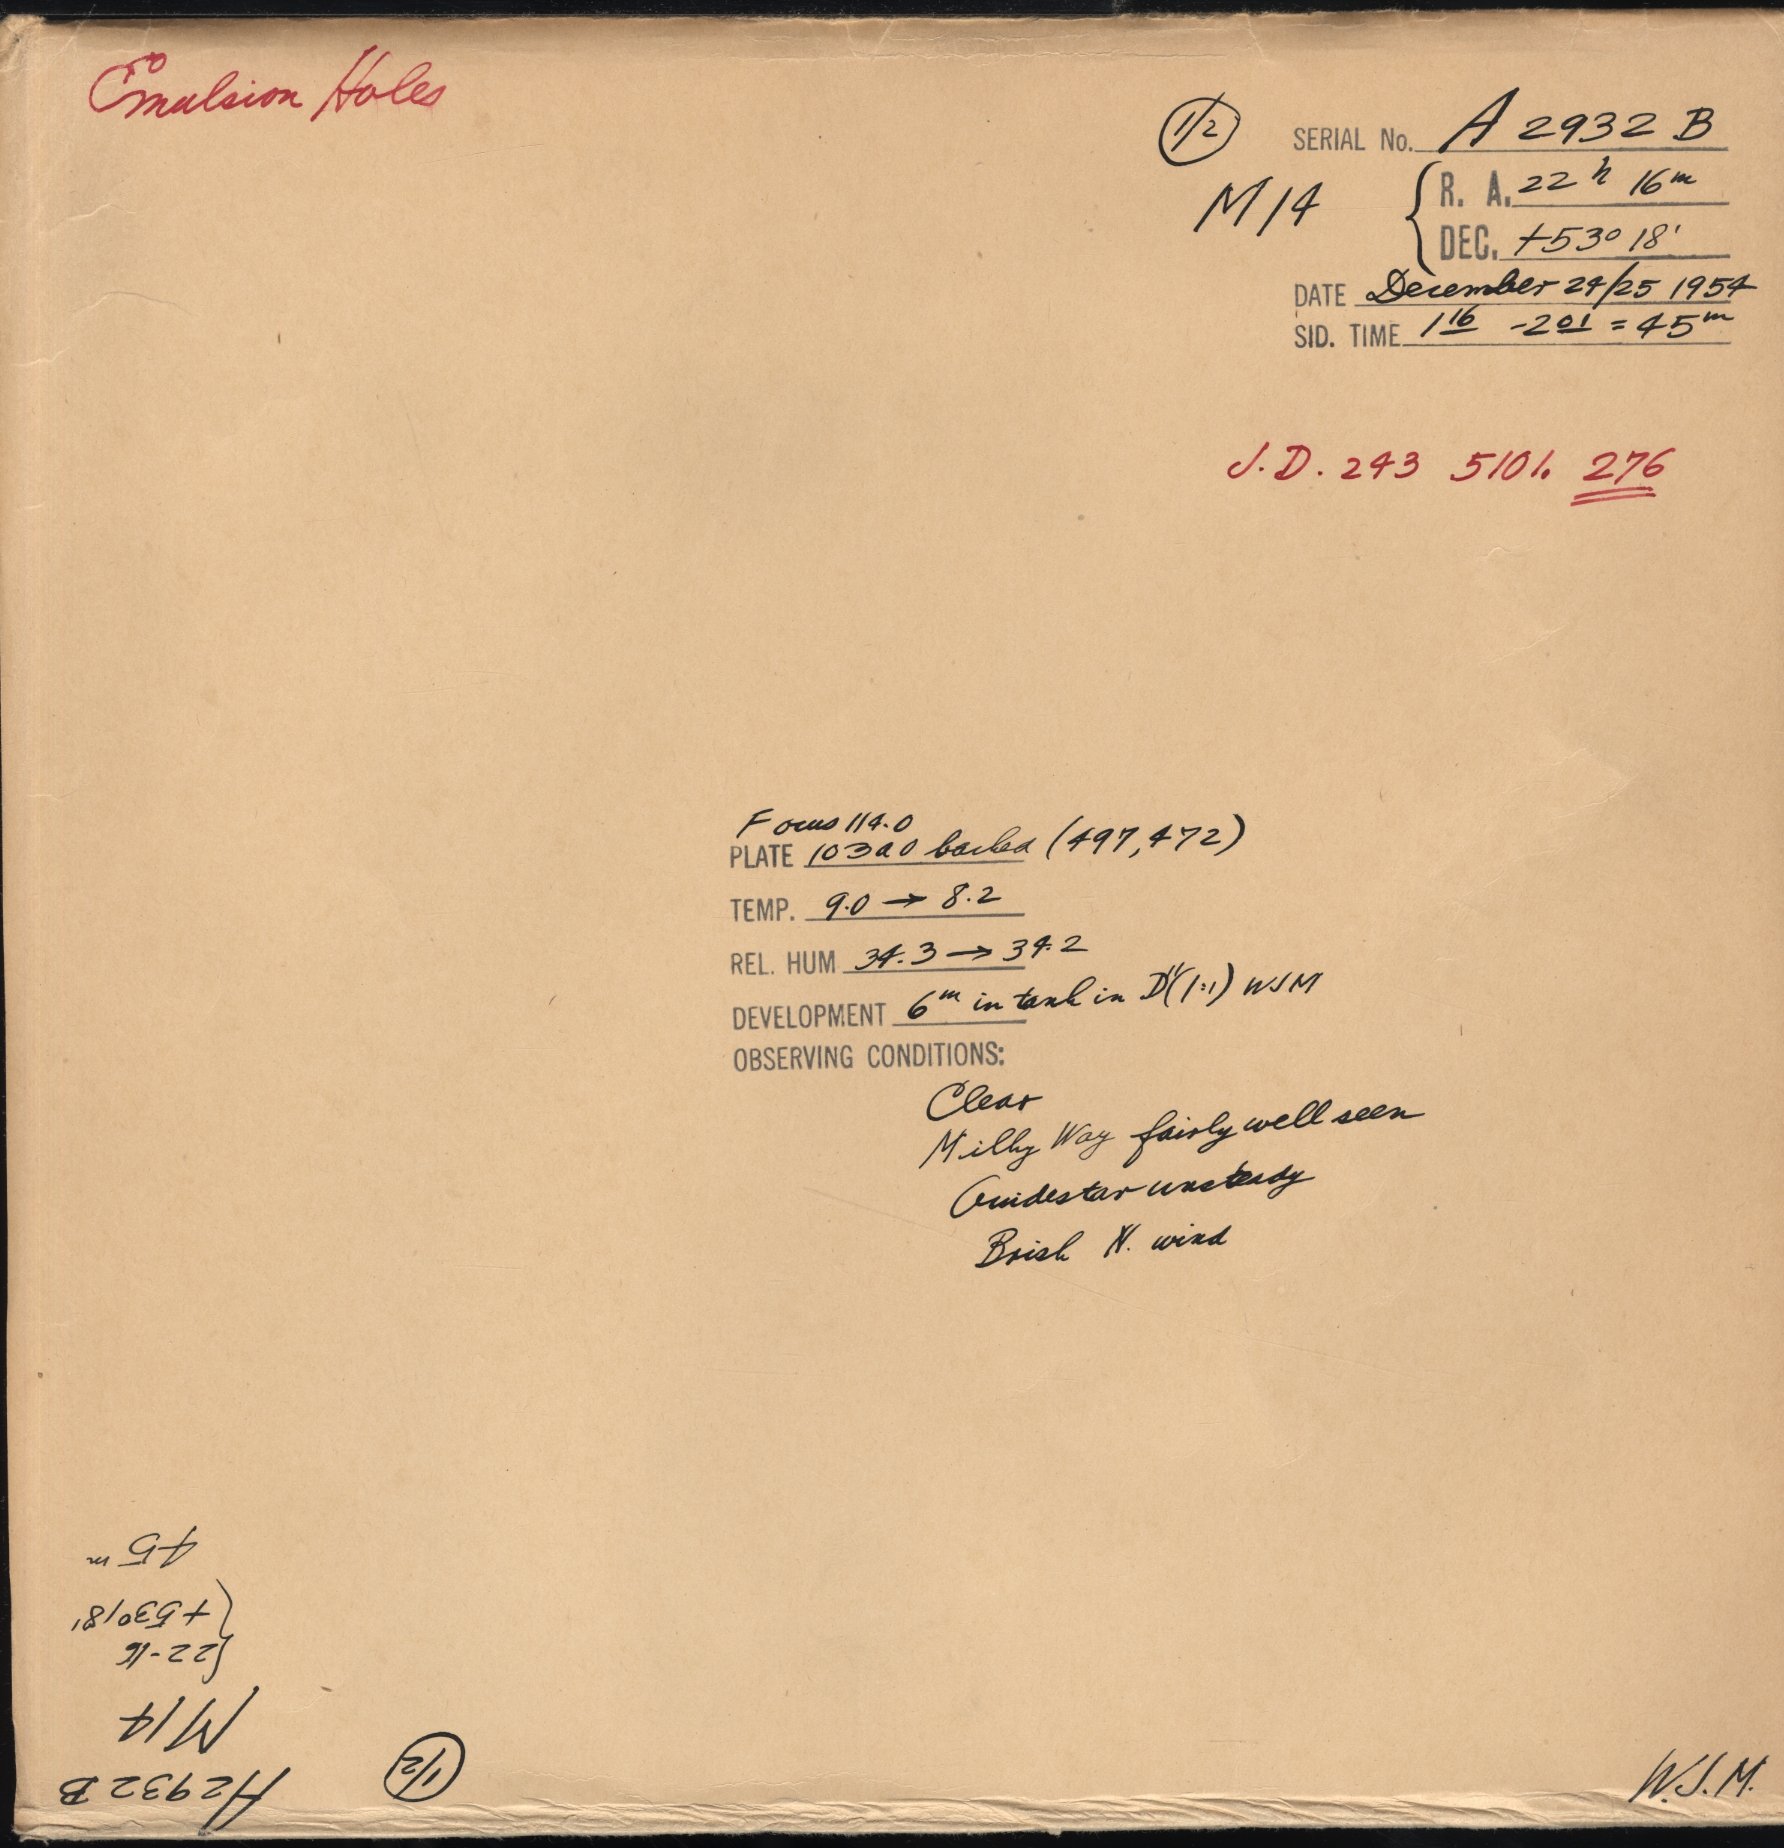 Emulsion Holes
1/2 SERIAL No. A 2932 B
M 14
R. A. 22h 16m
DEC. +53° 18'
DATE December 24/25 1954
SID. TIME 1 16 - 2 01 = 45m
J.D. 243 5101. 276
Focus 114.0
PLATE 103a0 backed (497,472)
TEMP. 9.0 → 8.2
REL. HUM 34.3 → 34.2
DEVELOPMENT 6m in tank in D11(1:1) WJM
OBSERVING CONDITIONS:
Clear
Milky Way fairly well seen
Guidestar unsteady
Brisk N. wind
A2932 B 1/2
M14
22-16
+53°18'
45m
W.J.M.